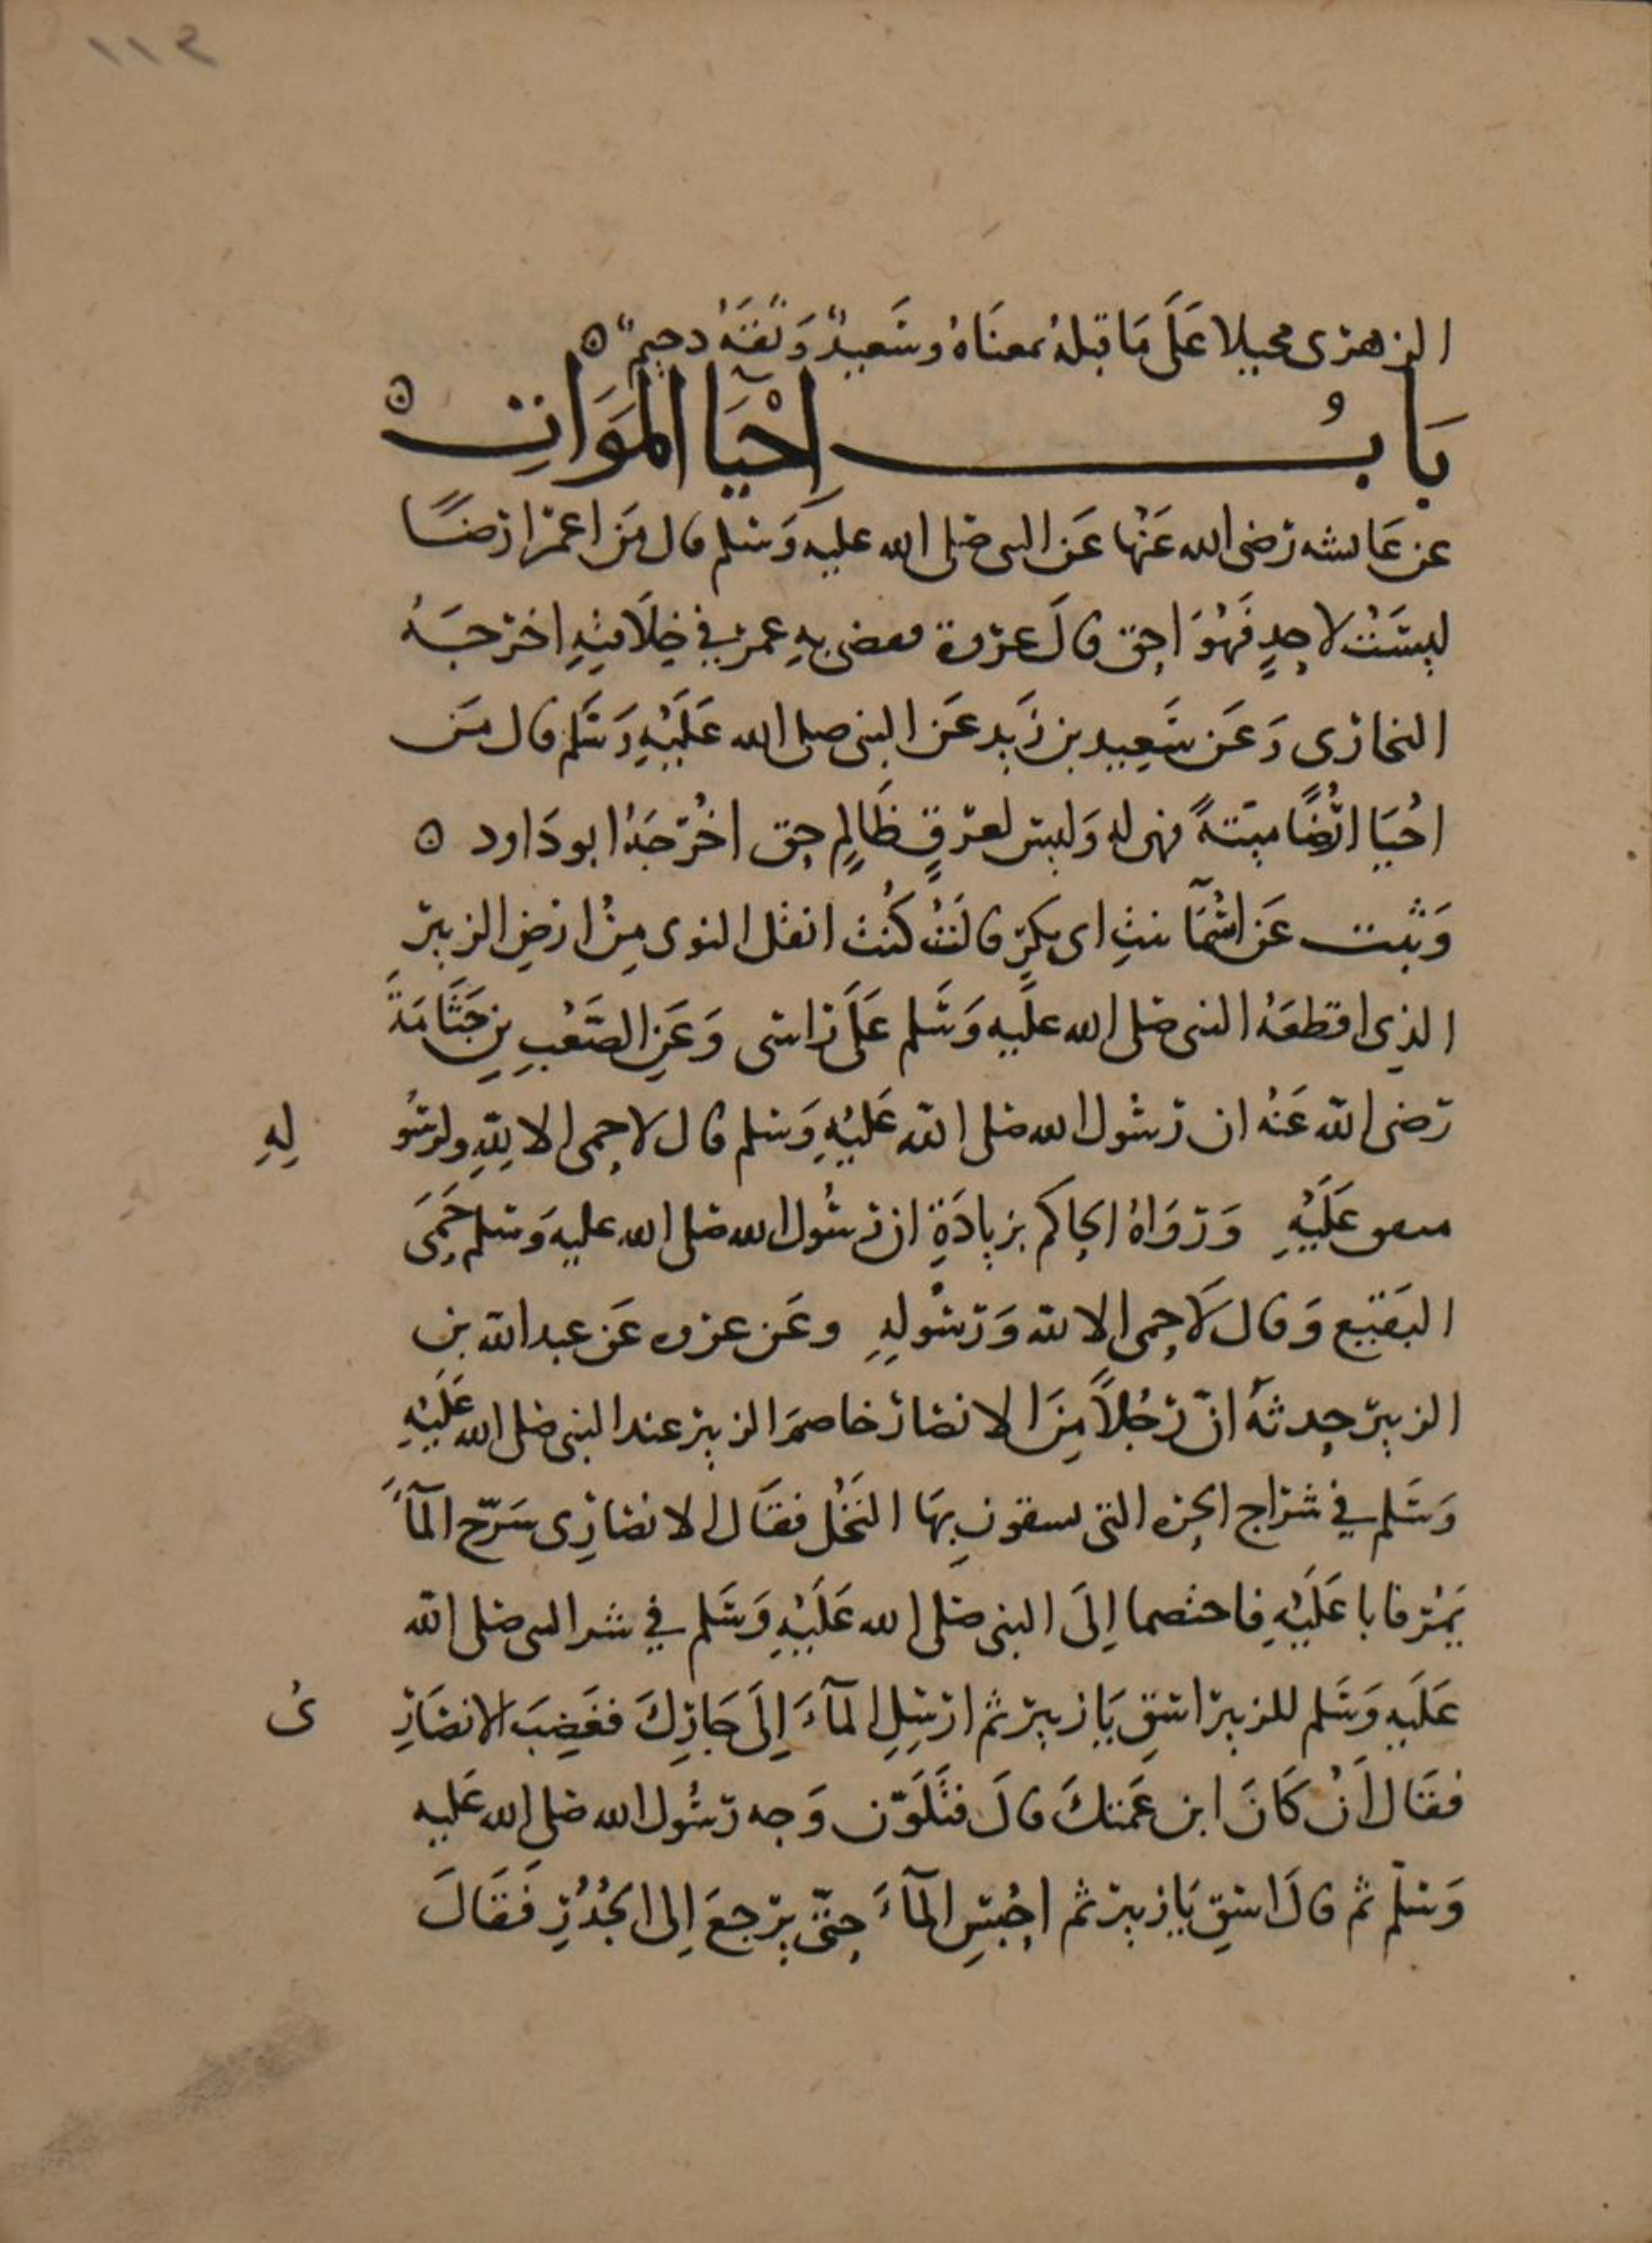 ١١٤
الزهرى محيلا عَلَى مَا قبلهُ بمعنَاهُ وسَعيدٌ وَثقَهُ دحيمٌ ه
بَابُ إحْيَآ المَوَاتِ ه
عن عَائشه رَضى الله عَنْهَا عَن النبى صلى الله عليه وَسَلم قال مَن اعمَر ارْضًا
ليسَتْ لاحدٍ فَهُوَ احق قالَ عروة فقضى بهِ عمر في خِلَافتِهِ اخرجَهُ
البخارى وَعَن سَعِيد بن زَيد عَن النبى صلى الله عَلَيْهِ وَسَلم قال مَن
احْيَا ارْضًا ميتَةً فهى له وَليسَ لعرقٍ ظَالِمٍ حق اخْرَجَهُ ابو دَاود ه
وَثبت عَن اسْمَآ بنتِ ابى بكرٍ قالَتْ كُنْتُ انقل النوى مِنْ ارْضِ الزبير
الذِى اقطعَهُ النبى صلى الله عَليه وَسَلم عَلَى رَاسى وَعَنِ الصَّعْبِ بنِ جَثَّامَةَ
رَضى الله عَنْهُ ان رَسُول الله صلى الله عَليْهِ وَسلم قال لا حِمى الا لِلّهِ ولرسُو لِهِ
متفق عَلَيْهِ وَرَوَاهُ الحاكم بزيادَةِ ان رسُول الله صلى الله عليه وَسلم حَمَى
البَقيع وَقال لَا حِمى الا لله وَرَسُولِهِ وعَن عروه عَن عبد الله بن
الزبير حدثهُ انّ رَجُلاً مِنَ الانصار خاصمَ الزبير عند النبى صلى الله عَلَيْهِ
وَسَلم في شراج الحره التى يسقون بِهَا النَخْل فقَال الانصَارِى سَرّح المآءَ
يَمُر فابا عَلَيْهِ فاختصما اِلَى النبى صلى الله عَلَيْهِ وَسَلم في شر النبى صلى الله
عَلَيه وَسَلم للزبير اسقِ يَا زبير ثم ارْسِلِ المآءَ اِلَى جَارِكَ فغَضِبَ الانصَارِ ىُ
فقَال اَنْ كَانَ ابن عَمتكَ قالَ فتَلَوّن وَجه رَسُول الله صلى الله عَليه
وَسَلّم ثم قالَ اسقِ يَا زبير ثم احْبسِ المآءَ حتّى يرجعَ اِلى الجُدُرِ فَقَالَ